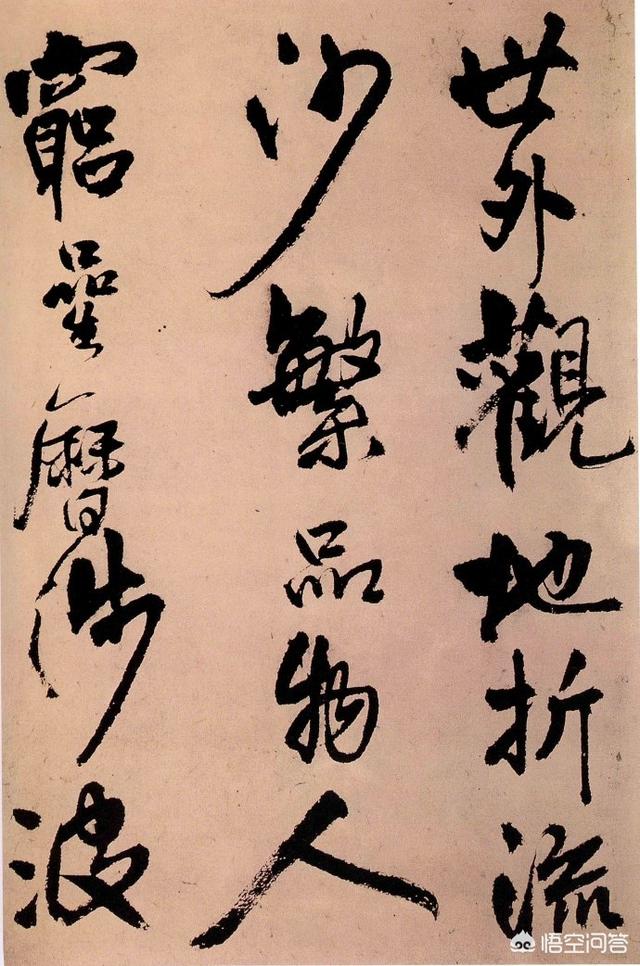 世外觀地折流
沙繁品物人
窮星曆涉波
悟空问答